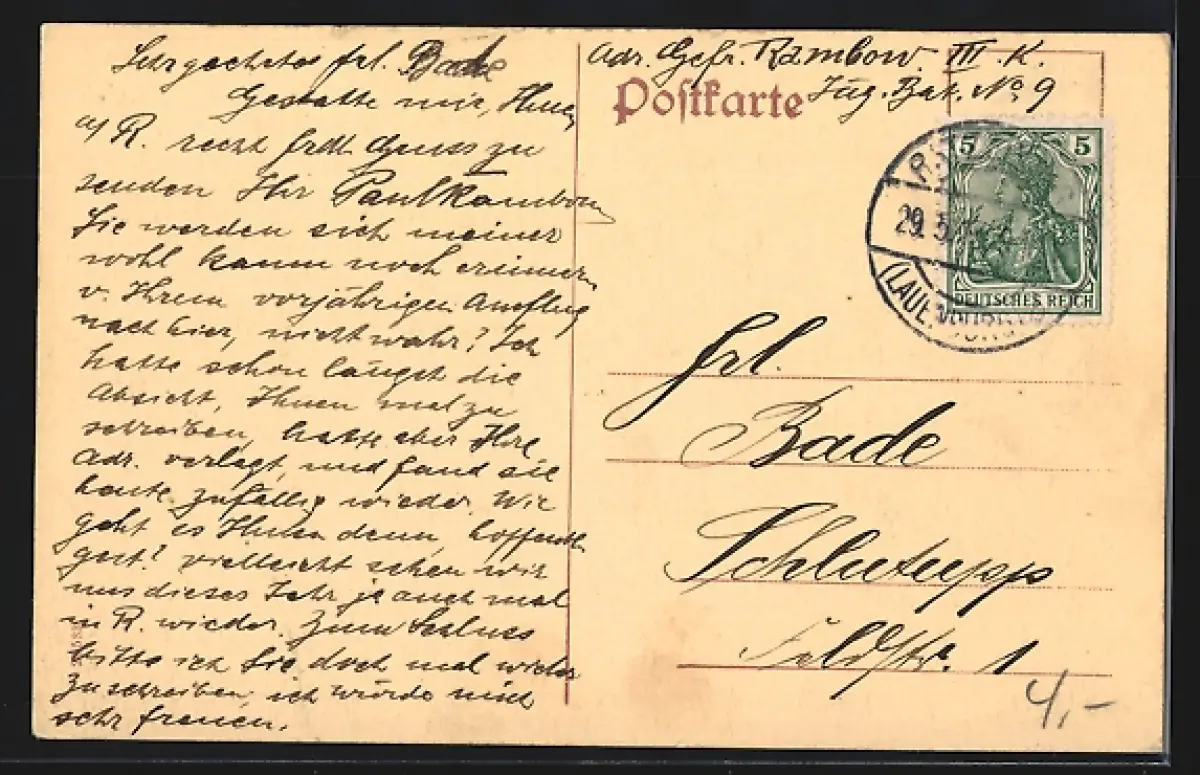 Sehr geehrtes frl. Bade
Gestatte mir, Ihnen
a/ R. recht frdl. Gruss zu
senden Ihr Paul Rambow
Sie werden sich meiner
wohl kaum noch erinnern
v. Ihrem vorjährigen Ausflug
nach hier, nicht wahr? Ich
hatte schon längst die
Absicht, Ihnen mal zu
schreiben, hatte aber Ihre
Adr. verlegt, und fand sie
heute zufällig wieder. Wie
geht es Ihnen denn, hoffentl.
gut? vielleicht sehen wir
uns dieses Jahr ja auch mal
in R. wieder. Zum Schluss
bitte ich Sie doch mal wieder
zu schreiben, ich würde mich
sehr freuen.
Adr. Gefr. Rambow. III. K.
Jäg. Bat. No. 9
Postkarte
5 5
DEUTSCHES REICH
29. 5.
(LAUENBURG
Frl.
Bade
Schlutupp
Feldstr. 1
4,-